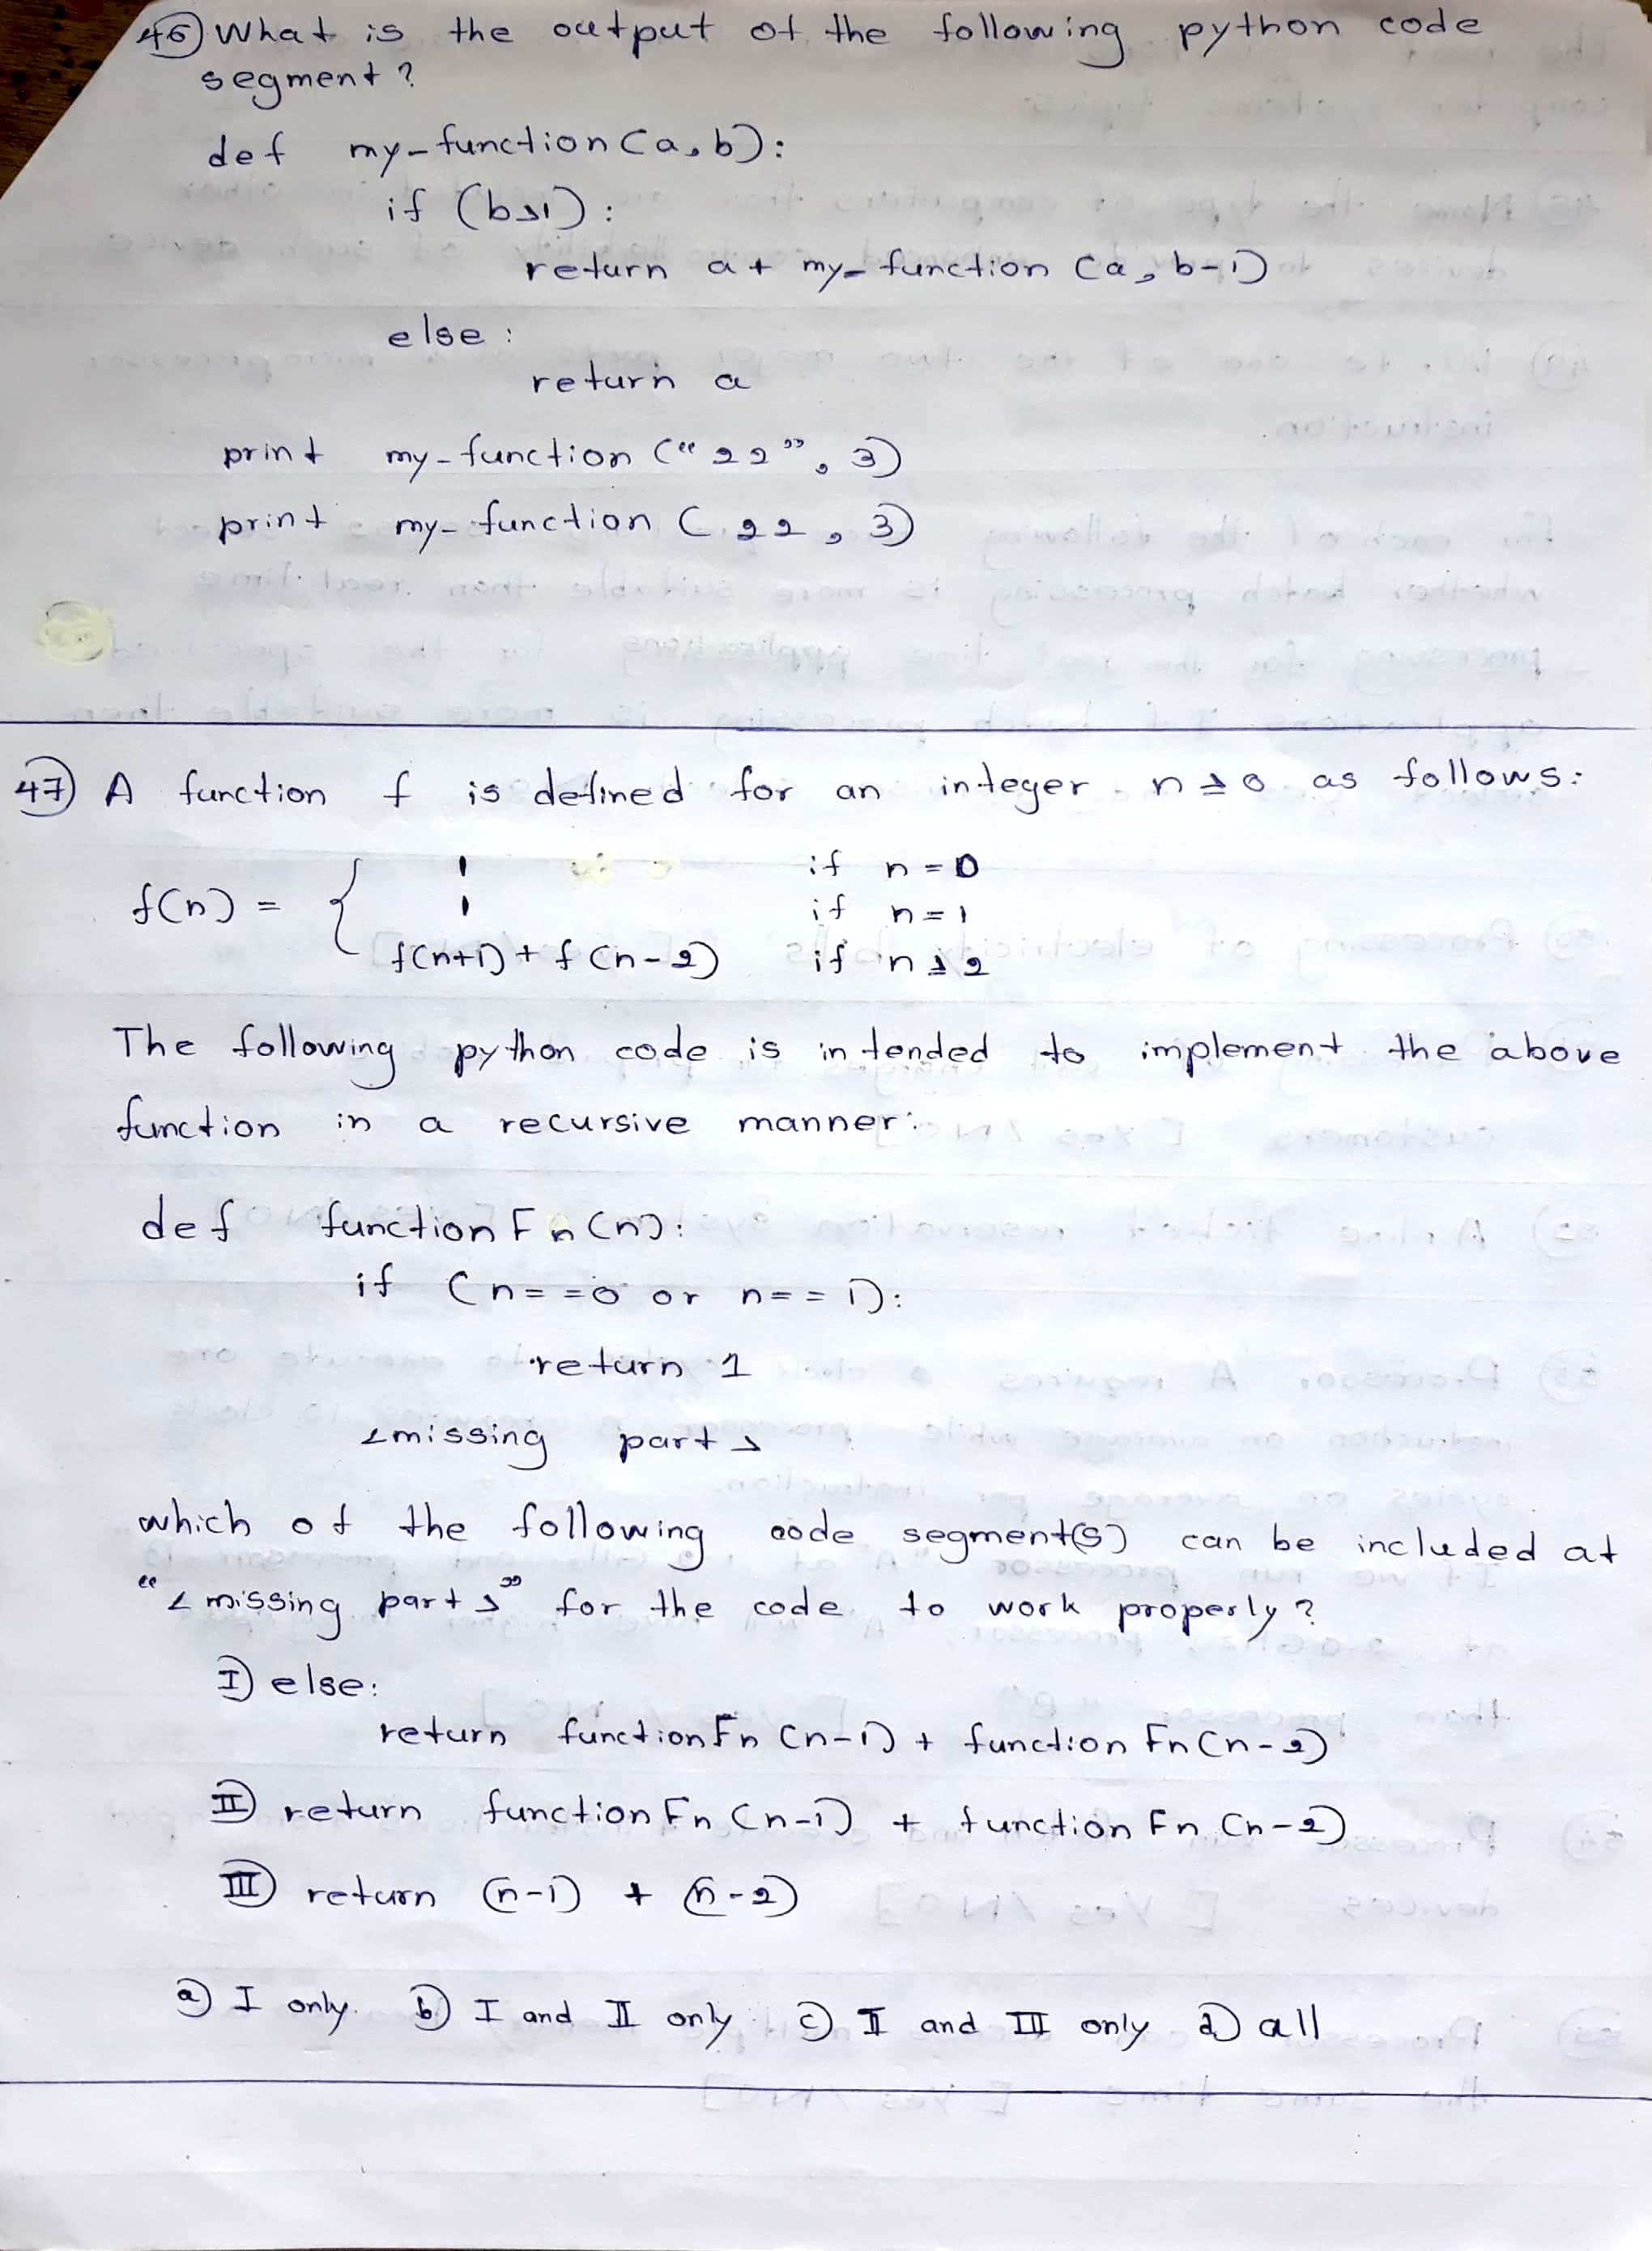 46) What is the output of the following python code
segment?
def my-function(a,b):
if (b>1):
return a+ my-function (a, b-1)
else:
return a
print my-function ("22", 3)
print my-function (22, 3)
47) A function f is defined for an integer n ≥ 0 as follows:
f(n) = {
1 if n = 0
1 if n = 1
f(n+1) + f(n-2) if n ≥ 2
The following python code is intended to implement the above
function in a recursive manner:
def functionFn(n):
if (n==0 or n==1):
return 1
<missing part>
which of the following code segment(s) can be included at
"<missing part>" for the code to work properly?
I) else:
return functionFn(n-1) + functionFn(n-2)
II) return functionFn(n-1) + functionFn(n-2)
III) return (n-1) + (n-2)
a) I only. b) I and II only c) II and III only d) all